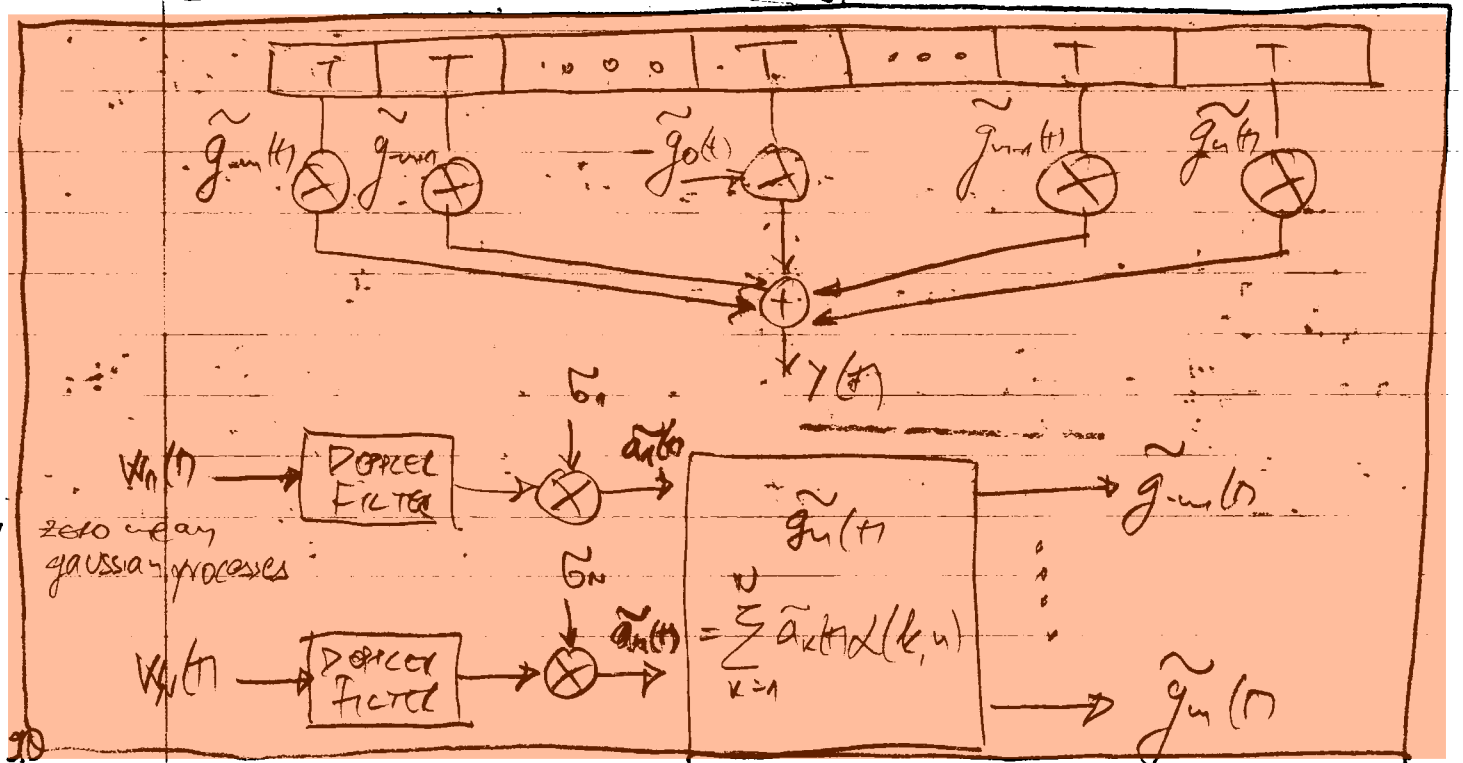 T T . . . . T . . . T T
g̃₋ₘ(t) g̃₋ₘ₊₁ g̃₀(t) g̃ₘ₋₁(t) g̃ₘ(t)
+
y(t)
σ₁
w₁(t) DOPPLER FILTER ã₁(t)
zero mean
gaussian processes
σN
wN(t) DOPPLER FILTER ãN(t)
g̃ₙ(t)
= Σ ãₖ(t) α(k,n)
N
k=1
g̃₋ₘ(t)
g̃ₘ(t)